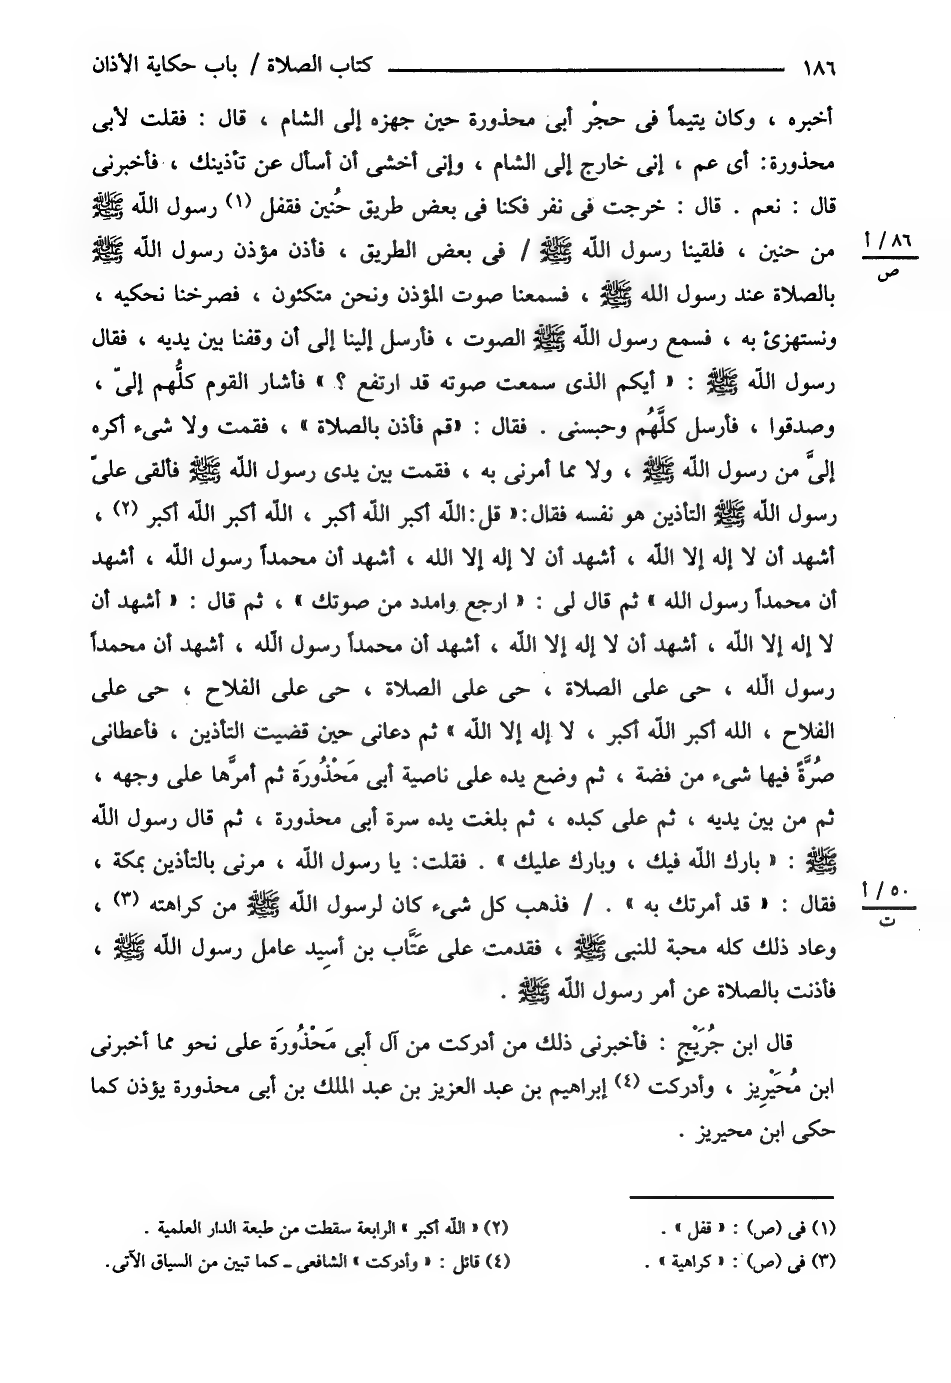 ١٨٦ ــــــــــــــــ كتاب الصلاة / باب حكاية الأذان
أخبره ، وكان يتيماً فى حجْر أبى محذورة حين جهزه إلى الشام ، قال : فقلت لأبى
محذورة: أى عم ، إنى خارج إلى الشام ، وإنى أخشى أن أسأل عن تأذينك ، فأخبرنى
قال : نعم . قال : خرجت فى نفر فكنا فى بعض طريق حُنين فقفل (١) رسول اللّه ﷺ
من حنين ، فلقينا رسول اللّه ﷺ / فى بعض الطريق ، فأذن مؤذن رسول اللّه ﷺ
٨٦ / أ
ص
بالصلاة عند رسول الله ﷺ ، فسمعنا صوت المؤذن ونحن متكئون ، فصرخنا نحكيه ،
ونستهزئ به ، فسمع رسول اللّه ﷺ الصوت ، فأرسل إلينا إلى أن وقفنا بين يديه ، فقال
رسول اللّه ﷺ : « أيكم الذى سمعت صوته قد ارتفع ؟ » فأشار القوم كلُّهم إلىّ ،
وصدقوا ، فأرسل كلَّهُم وحبسنى . فقال : «قم فأذن بالصلاة » ، فقمت ولا شىء أكره
إلىَّ من رسول اللّه ﷺ ، ولا مما أمرنى به ، فقمت بين يدى رسول اللّه ﷺ فألقى علىّ
رسول اللّه ﷺ التأذين هو نفسه فقال:« قل:اللّه أكبر اللّه أكبر ، اللّه أكبر اللّه أكبر (٢) ،
أشهد أن لا إله إلا اللّه ، أشهد أن لا إله إلا الله ، أشهد أن محمداً رسول اللّه ، أشهد
أن محمداً رسول الله » ثم قال لى : « ارجع وامدد من صوتك » ، ثم قال : « أشهد أن
لا إله إلا اللّه ، أشهد أن لا إله إلا اللّه ، أشهد أن محمداً رسول اللّه ، أشهد أن محمداً
رسول اللّه ، حى على الصلاة ، حى على الصلاة ، حى على الفلاح ، حى على
الفلاح ، الله أكبر اللّه أكبر ، لا إله إلا اللّه » ثم دعانى حين قضيت التأذين ، فأعطانى
صُرَّةً فيها شىء من فضة ، ثم وضع يده على ناصية أبى مَحْذُورَة ثم أمرَّها على وجهه ،
ثم من بين يديه ، ثم على كبده ، ثم بلغت يده سرة أبى محذورة ، ثم قال رسول اللّه
ﷺ : « بارك اللّه فيك ، وبارك عليك » . فقلت: يا رسول اللّه ، مرنى بالتأذين بمكة ،
فقال : « قد أمرتك به » . / فذهب كل شىء كان لرسول اللّه ﷺ من كراهته (٣) ،
٥٠ / أ
ت
وعاد ذلك كله محبة للنبى ﷺ ، فقدمت على عَتَّاب بن أسِيد عامل رسول اللّه ﷺ ،
فأذنت بالصلاة عن أمر رسول اللّه ﷺ .
قال ابن جُرَيْجٍ : فأخبرنى ذلك من أدركت من آل أبى مَحْذُورَة على نحو مما أخبرنى
ابن مُحَيْرِيز ، وأدركت (٤) إبراهيم بن عبد العزيز بن عبد الملك بن أبى محذورة يؤذن كما
حكى ابن محيريز .
(١) فى (ص) : « قفل » .
(٢) « اللّه أكبر » الرابعة سقطت من طبعة الدار العلمية .
(٣) فى (ص) : « كراهية » .
(٤) قائل : « وأدركت » الشافعى ـ كما تبين من السياق الآتى.